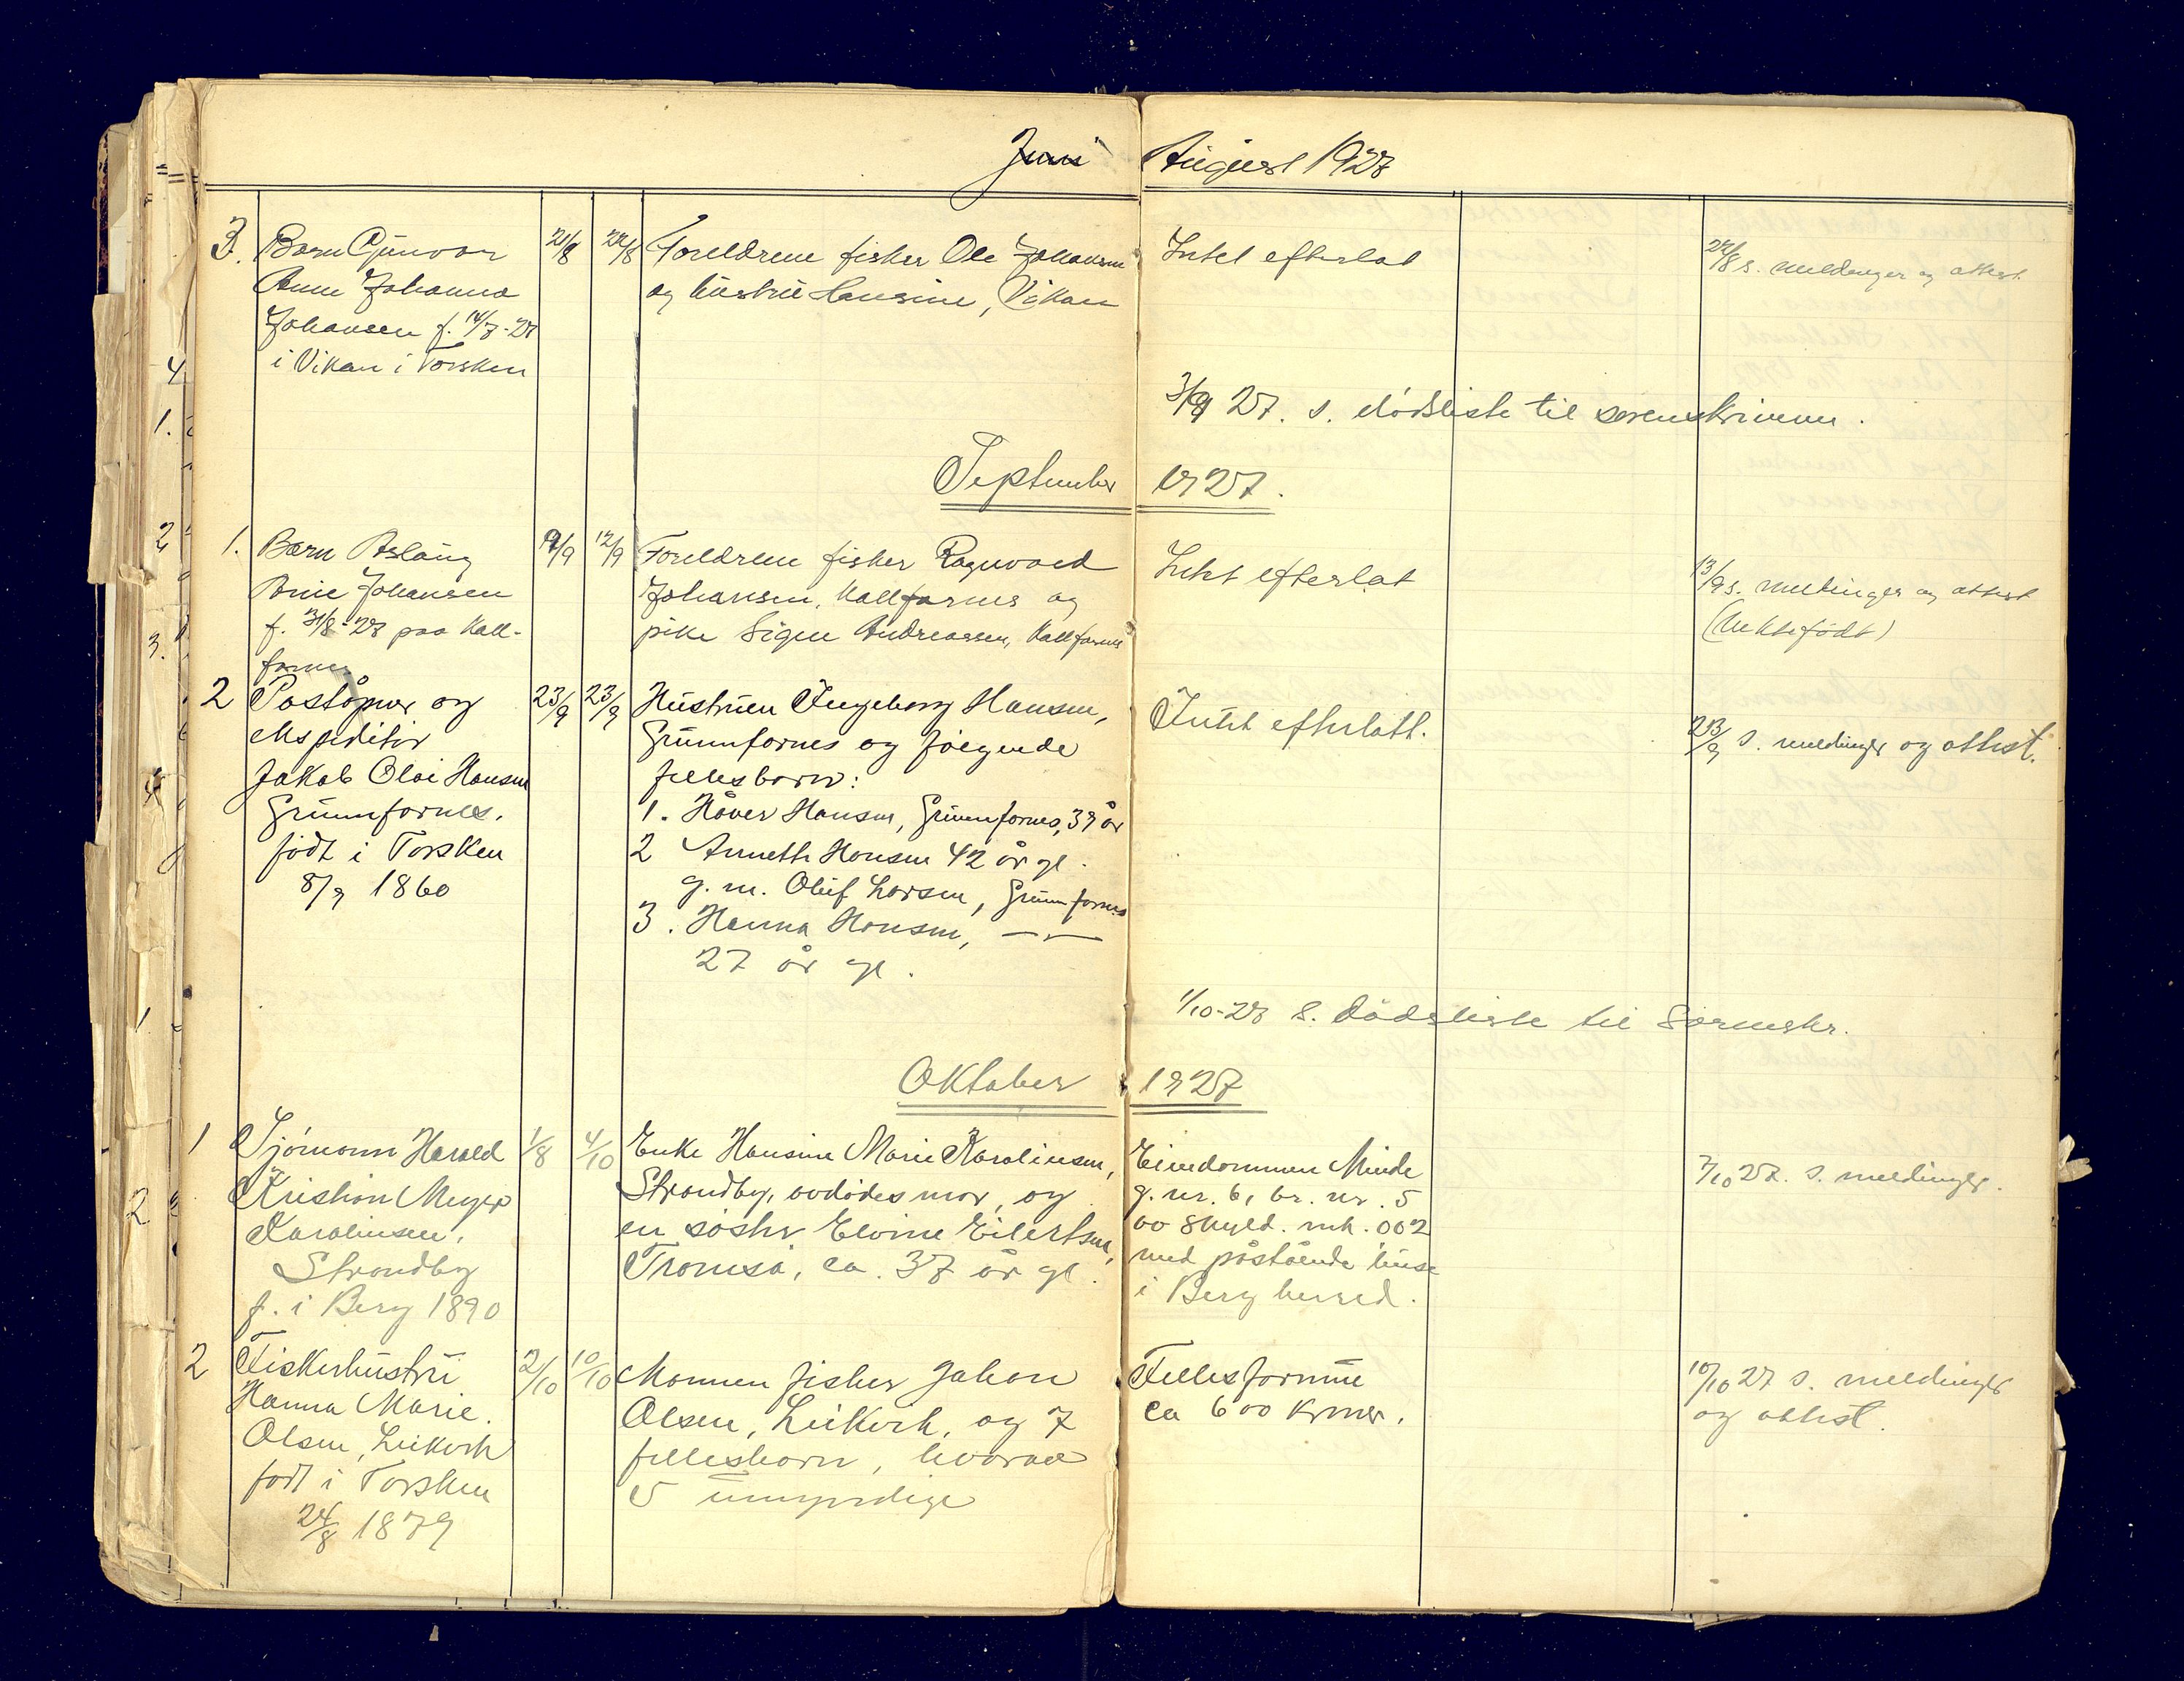 Juni August 1927
3. Barn Gunvor 21/8 22/8 Foreldrene fisker Ole Johansen Intet efterlat 22/8 s. meldinger og attest
Anne Johanna og hustru Hansine, Vikan
Johansen f. 14/7-27
i Vikan i Torsken
3/9 27. s. dødsliste til sorenskriveren.
September 1927.
1. Barn Aslaug 9/9 12/9 Foreldrene fisker Ragnvald Intet efterlat 13/9 s. meldinger og attest
Johansen Johansen, Kalfarnes og (Uektefødt)
f. 31/8-27 paa Kal- pike Signe Andreassen, Kalfarnes
farnes
2 Poståpner og 23/9 23/9 Hustruen Ingeborg Hansen, Intet efterlatt. 23/9 s. meldinger og attest.
ekspeditør Grunnfarnes og følgende
Jakob Olai Hansen fellesbarn:
Grunnfarnes. 1. Håver Hansen, Grunnfarnes, 39 år
født i Torsken 2 Annette Hansen 42 år gl.
8/9 1860 g. m. Oluf Larsen, Grunnfarnes
3. Hanna Hansen, — " —
27 år gl.
1/10-27 s. dødsliste til Sorenskr.
Oktober 1927
1 Sjømann Harald 1/8 4/10 Enke Hansine Marie Karolinsen, Eiendommen Minde 7/10 27. s. meldinger.
Kristian Meyer Strandby, avdødes mor, og g. nr. 6, br. nr. 5
Karolinsen, en søster Elvine Eilertsen, av skyld. mk. 002
Strandby Tromsø, ca. 37 år gl. med påstående huse
f. i Berg 1890 i Berg herred.
2 Fiskerhustru 2/10 10/10 Mannen fisker Johan Fellesformue 10/10 27 s. meldinger
Hanna Marie. Olsen, Leikvik, og 7 ca 600 kroner. og attest.
Olsen, Leikvik fellesbarn, hvorav
født i Torsken 5 umyndige
24/8 1879